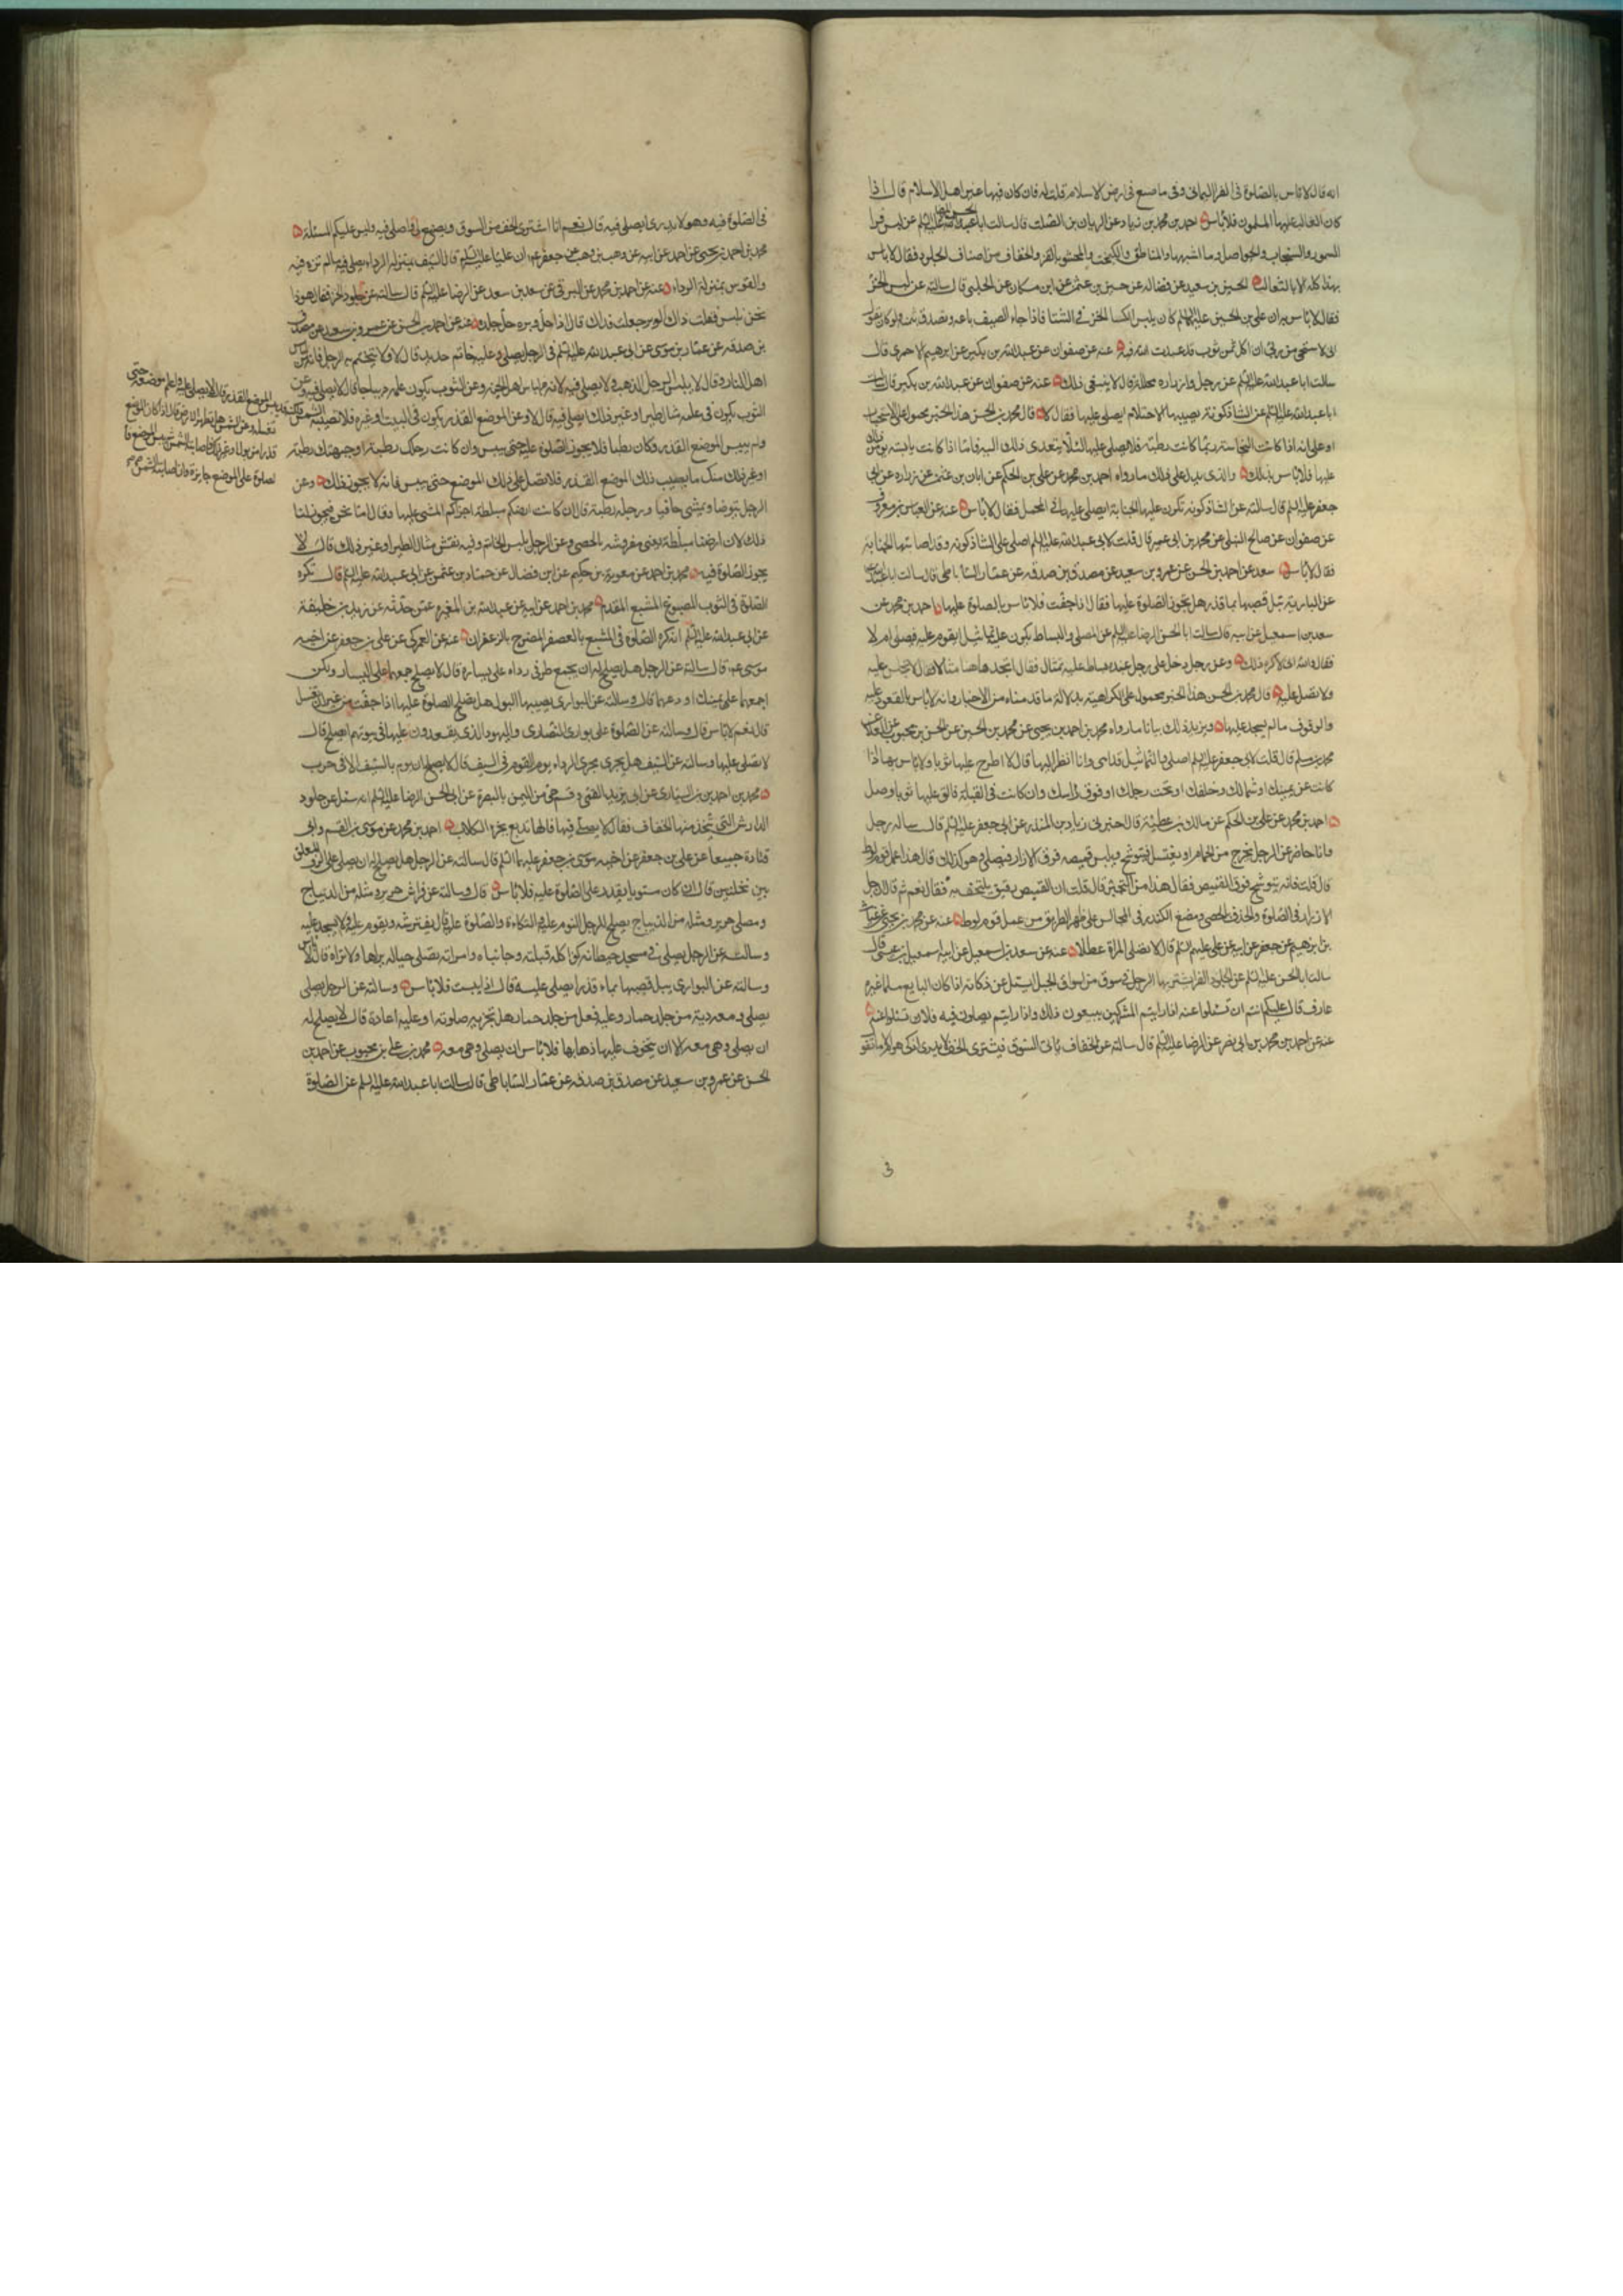 انه قال لا باس بالصلوة في الفرا اليماني وفي ما صنع في ارض الاسلام قلت له فان كان فيها غير اهل الاسلام قال اذا
كان الغالب عليها المسلمون فلا باس احمد بن محمد بن زياد عن الريان بن الصلت قال سالت ابا الحسن الرضا عليه السلم عن لبس فرا
السمور والسنجاب والحواصل وما اشبهها والمناطق والكيمخت والمحشو بالقز والخفاف من اصناف الجلود فقال لا باس
بهذا كله الا بالثعالب الحسين بن سعيد عن فضاله عن حسين بن عثمن عن ابن مسكان عن الحلبي قال سالته عن لبس الخز
فقال لا باس به ان علي بن الحسين عليهما السلم كان يلبس الكسا الخز في الشتا فاذا جاء الصيف باعه وتصدق بثمنه وكان يقول
اني لاستحي من ربي ان اكل ثمن ثوب قد عبدت الله فيه عنه عن صفوان عن عبدالله بن بكير عن ابرهيم الاحمري قال
سالت ابا عبدالله عليه السلم عن رجل وازراره محللة قال لا ينبغي ذلك عنه عن صفوان عن عبدالله بن بكير قال سالت
ابا عبدالله عليه السلم عن الشاذكونة يصيبها الاحتلام ايصلي عليها فقال لا قال محمد بن الحسن هذا الخبر محمول على الاستحباب
او على انه اذا كانت النجاسة رطبة ربما كانت رطبة فلا يصلي عليها لئلا يتعدى ذلك اليه فاما اذا كانت يابسة
عليها فلا باس بذلك والذي يدل على ذلك ما رواه احمد بن محمد عن علي بن الحكم عن ابان بن عثمن عن زراره عن ابي
جعفر عليه السلم قال سالته عن الشاذكونة تكون عليها الجنابة ايصلي عليها في المحمل فقال لا باس عنه عن العباس بن معروف
عن صفوان عن صالح النيلي عن محمد بن ابي عمير قال قلت لابي عبدالله عليه السلم اصلي على الشاذكونه وقد اصابتها الجنابه
فقال لا باس سعد عن احمد بن الحسن عن عمرو بن سعيد عن مصدق بن صدقه عن عمار الساباطي قال سالت ابا عبدالله
عن البارية يبل قصبها بماء قذر هل تجوز الصلوة عليها فقال اذا جفت فلا باس بالصلوة عليها احمد بن محمد عن
سعد بن اسمعيل عن ابيه قال سالت ابا الحسن الرضا عليه السلم عن المصلي والبساط يكون عليه تماثيل ايقوم عليه فيصلي ام لا
فقال والله اني لاكره ذلك وعن رجل دخل على رجل عنده بساط عليه تمثال فقال اتجد هاهنا مثالا فقال لا تجلس عليه
ولا تصل عليه قال محمد بن الحسن هذا الخبر محمول على الكراهية بدلالة ما قدمناه من الاخبار وانه لا باس بالقعود عليه
والوقوف ما لم يسجد عليها ويزيد ذلك بيانا ما رواه محمد بن احمد بن يحيى عن محمد بن الحسين عن الحسن بن محبوب عن العلا عن
محمد بن مسلم قال قلت لابي جعفر عليه السلم اصلي والتماثيل قدامي وانا انظر اليها قال لا اطرح عليها ثوبا ولا باس بها اذا
كانت عن يمينك او شمالك وخلفك او تحت رجلك او فوق راسك وان كانت في القبلة فالق عليها ثوبا وصل
احمد بن محمد عن علي بن الحكم عن مالك بن عطية قال اخبرني زياد بن المنذر عن ابي جعفر عليه السلم قال ساله رجل
وانا حاضر عن الرجل يخرج من الحمام او يغتسل فيتوشح ويلبس قميصه فوق الازار فيصلي وهو كذلك قال هذا عمل قوم لوط
قال قلت فانه يتوشح فوق القميص فقال هذا من التجبر قال قلت ان القميص رقيق يلتحف به فقال نعم ثم قال حل
الازرار في الصلوة والخذف بالحصى ومضغ الكندر في المجالس على ظهر الطريق من عمل قوم لوط عنه عن محمد بن يحيى عن غياث
بن ابرهيم عن جعفر عن ابيه عن علي عليهم السلم قال لا تصلي المراة عطلا عنه عن سعد بن اسمعيل عن ابيه اسمعيل بن عيسى قال
سالت ابا الحسن عليه السلم عن الجلود الفرا يشتريها الرجل في سوق من اسواق الجبل ايسئل عن ذكاته اذا كان البايع مسلما غير
عارف قال عليكم انتم ان تسئلوا عنه اذا رايتم المشركين يبيعون ذلك واذا رايتم يصلون فيه فلا تسئلوا عنه
عنه عن احمد بن محمد بن ابي نصر عن الرضا عليه السلم قال سالته عن الخفاف ياتي السوق فيشتري الخف لا يدري اذكي هو ام لا ما تقول
في الصلوة فيه وهو لا يدري ايصلي فيه قال نعم انا اشتري الخف من السوق ويصنع لي فاصلي فيه وليس عليكم المسئلة
محمد بن احمد بن يحيى عن احمد عن ابيه عن وهب بن وهب عن جعفر عن ان عليا عليه السلم قال السيف بمنزلة الرداء يصلي فيه ما لم تر فيه
والقوس بمنزلة الرداء وعنه عن احمد بن محمد عن البرقي عن سعد بن سعد عن الرضا عليه السلم قال سالته عن جلود الخز فقال هوذا
نحن نلبس فقلت ذاك الوبر جعلت فداك قال اذا حل وبره حل جلده وعنه عن احمد بن الحسن عن عمرو بن سعيد عن مصدق
بن صدقه عن عمار بن موسى عن ابي عبدالله عليه السلم في الرجل يصلي وعليه خاتم حديد قال لا ولا يتختم به الرجل فانه من لباس
اهل النار وقال لا يلبس الرجل الذهب ولا يصلي فيه لانه من لباس اهل الجنة وعن الثوب يكون علمه ديباجا قال لا يصلي فيه وعن
الثوب يكون في علمه مثال طير او غير ذلك ايصلي فيه قال لا وعن الموضع القذر يكون في البيت او غيره فلا تصيبه الشمس
ولم ييبس الموضع القذر وكان رطبا فلا يجوز الصلوة عليه حتى ييبس وان كانت رجلك رطبة او جبهتك رطبة
او غير ذلك منك ما يصيب ذلك الموضع القذر فلا تصل على ذلك الموضع حتى ييبس فانه لا يجوز ذلك وعن
الرجل يتوضا ويمشي حافيا ورجله رطبة قال ان كانت ارضكم مبلطة اجزاكم المشي عليها وقال اما نحن فيجوز لنا
ذلك لان ارضنا مبلطة يعني مفروشه بالحصى وعن الرجل يلبس الخاتم وفيه نقش مثال الطير او غير ذلك قال لا
يجوز الصلوة فيه محمد بن احمد عن معوية بن حكيم عن ابن فضال عن حماد بن عثمن عن ابي عبدالله عليه السلم قال تكره
الصلوة في الثوب المصبوغ المشبع المفدم محمد بن احمد عن ابيه عن عبدالله بن المغيرة عمن حدثه عن يزيد بن خليفة
عن ابي عبدالله عليه السلم انه كره الصلوة في المشبع بالعصفر المضرج بالزعفران عنه عن العمركي عن علي بن جعفر عن اخيه
موسى عم قال سالته عن الرجل هل يصلح له ان يجمع طرفي رداه على يساره قال لا يصلح جمعهما على اليسار ولكن
اجمعهما على يمينك او دعهما قال وسالته عن البواري يصيبها البول هل يصلح الصلوة عليها اذا جفت من غير ان تغسل
قال نعم لا باس قال وسالته عن الصلوة على بواري النصارى واليهود الذي يقعدون عليها في بيوتهم ايصلح قال
لا تصلي عليها وسالته عن السيف هل يجري مجرى الرداء يوم القوم في السيف قال لا يصلح ان يوم بالسيف الا في حرب
محمد بن احمد بن السياري عن ابي يزيد القمي وقسم حي من اليمن بالبصرة عن ابي الحسن الرضا عليه السلم انه سئل عن جلود
الدارش التي يتخذ منها الخفاف فقال لا يصلى فيها فانها تدبغ بخرء الكلاب احمد بن محمد عن موسى بن القسم وابي
قتادة جميعا عن علي بن جعفر عن اخيه موسى بن جعفر عليهما السلم قال سالته عن الرجل هل يصلح له ان يصلي على الرف المعلق
بين نخلتين قال ان كان مستويا يقدر على الصلوة عليه فلا باس قال وسالته عن فراش حرير ومثله من الديباج
ومصلى حرير ومثله من الديباج يصلح للرجل النوم عليه والتكاءة والصلوة عليه قال يفترشه ويقوم عليه ولا يسجد عليه
وسالته عن الرجل يصلي في مسجد حيطانه كوا كله قبلته وجانباه وامراته تصلي حياله يراها ولا تراه قال لا باس
وسالته عن البواري يبل قصبها بماء قذر ايصلى عليه قال اذا يبست فلا باس وسالته عن الرجل يصلي
ومعه دبة من جلد حمار وعليه نعل من جلد حمار هل تجزيه صلوته او عليه اعادة قال لا يصلح له
ان يصلي وهي معه الا ان يتخوف عليها ذهابها فلا باس ان يصلي وهي معه محمد بن علي بن محبوب عن احمد بن
الحسن عن عمرو بن سعيد عن مصدق بن صدقه عن عمار الساباطي قال سالت ابا عبدالله عليه السلم عن الصلوة